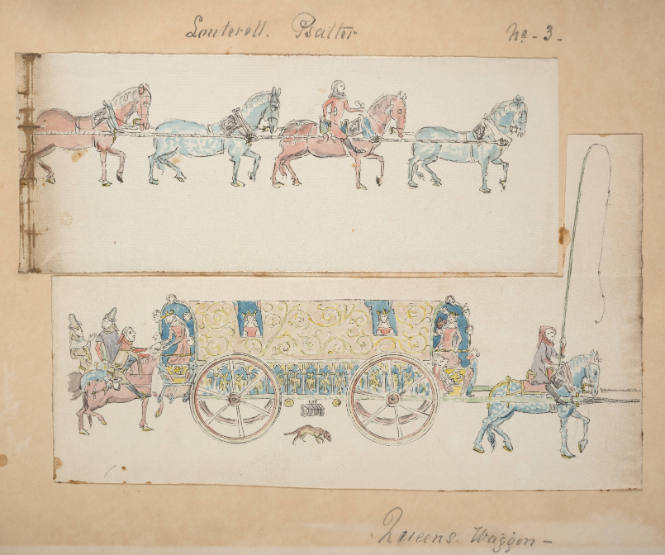 Louterell. Psalter
No - 3 -
Queens Waggon -